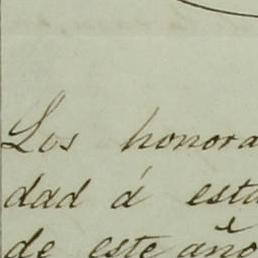 Los honora
dad á esta
de este año